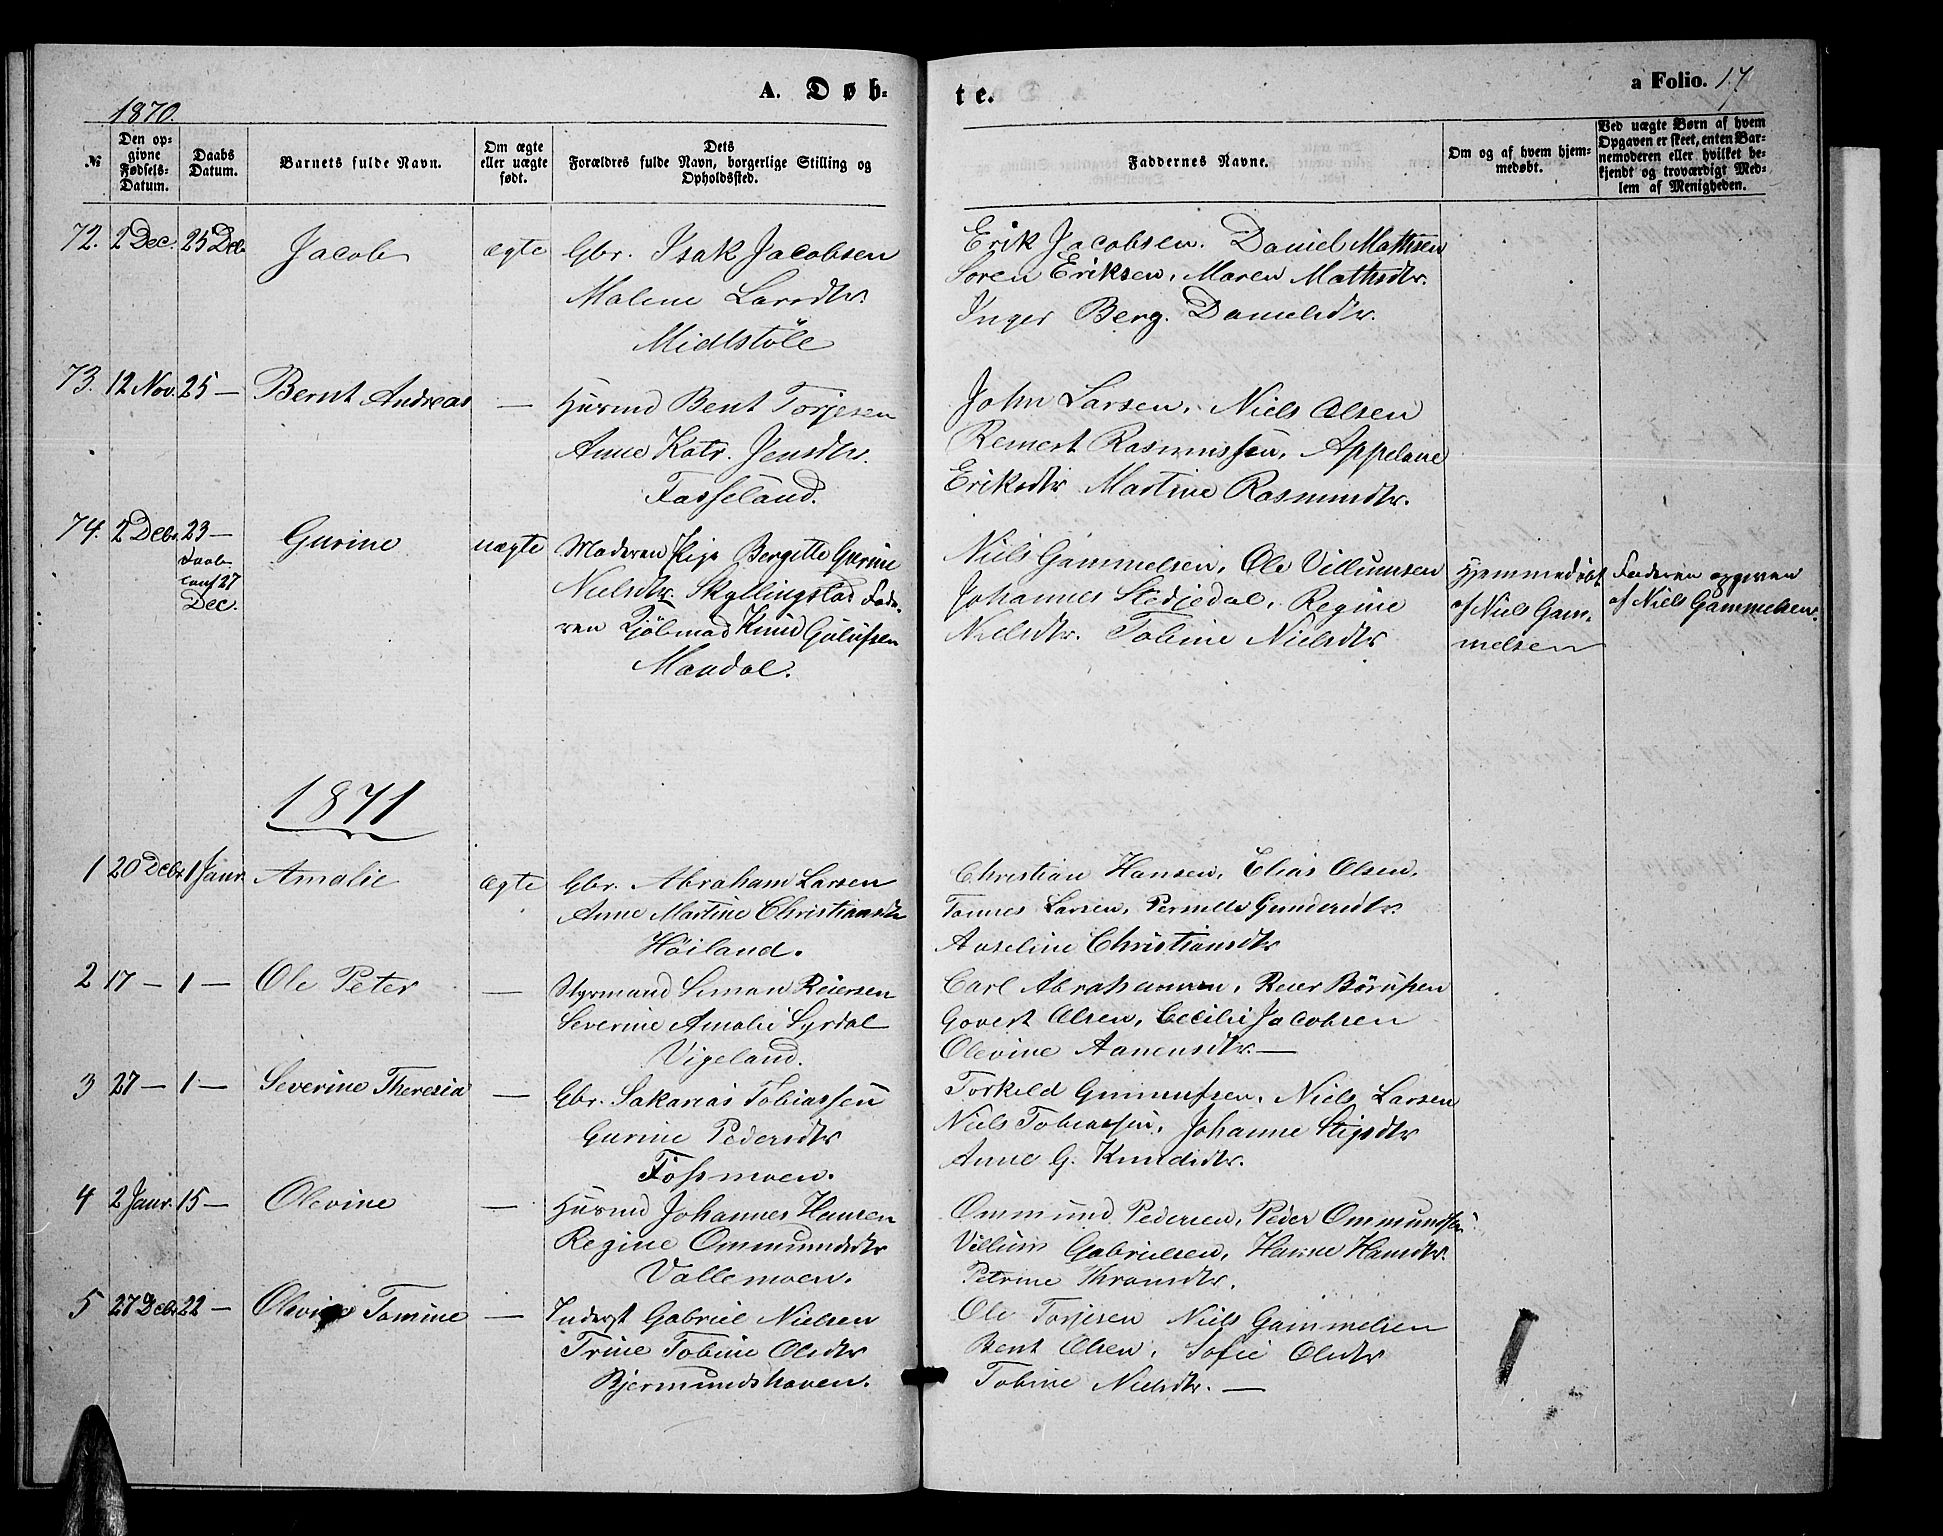 A. Døb-
te.
a Folio. 17
1870.
№
Den op-
givne
Fødsels-
Datum.
Daabs
Datum.
Barnets fulde Navn.
Om ægte
eller uægte
født.
Dets
Forældres fulde Navn, borgerlige Stilling og
Opholdssted.
Faddernes Navne.
Om og af hvem hjem-
medøbt.
Ved uægte Børn af hvem
Opgaven er skeet, enten Bar-
nemoderen eller hvilket be-
kjendt og troværdigt Med-
lem af Menigheden.
72. 2 Dec. 25 Deb. Jacob ægte Gbr. Isak Jacobsen
Malene Larsdtr.
Midtstöle
Erik Jacobsen. Daniel Mathisen
Soren Eriksen, Maren Mathsdtr.
Inger Berg. Danielsdtr.
73. 12 Nov. 25 — Bernt Andreas — Husmd Bent Torjesen
Anne Katr. Jensdtr.
Fasseland.
John Larsen, Niels Olsen
Remert Rasmussen, Appelone
Eriksdtr Martine Rasmusdtr.
74. 2 Debr. 23 — Gurine uægte Moderen Pige Bergitte Gurine
Daab
Conf 27
Dec.
Nielsdtr. Skyllingstad Fade-
ren Kjöbmad Knud Gulufsen
Mandal.
Niels Gammelsen, Ole Villumsen
Johannes Stedjedal, Regine
Nielsdtr. Tobine Nielsdtr
Hjemmedöbt
af Niels Gam-
melsen
Faderen opgiven
af Niels Gammelsen.
1871
1 20 Debr. 1 Janr. Amalie ægte Gbr. Abraham Larsen
Anne Martine Christiansdtr
Höiland.
Christian Hansen, Elias Olsen,
Tonnes Larsen, Pernille Gundersdtr.
Aaseline Christiansdtr
2 17 — 1 — Ole Peter — Styrmand Simon Reiersen
Severine Amalie Syrdal
Vigeland.
Carl Abrahamsen, Reier Börufsen
Govert Olsen, Cecilie Jacobsen
Olevine Aanensdtr. —
3 27 — 1 — Severine Theresia — Gbr. Sakarias Tobiassen
Gurine Pedersdtr
Fossmoen.
Torkild Gunnufsen, Niels Larsen
Niels Tobiassen, Johanne Stigsdtr
Anne G. Knudsdtr.
4 2 Janr. 15 — Olevine — Husmd Johannes Hansen
Regine Ommundsdtr
Vallemoen.
Ommund Pedersen, Peder Ommundsen
Villum Gabrielsen, Hanne Hansdtr.
Petrine Thronsdtr.
5 27 Debr. 22 — Olevine Tomine — Inderst Gabriel Nielsen
Trine Tobine Olsdtr
Bjermundshaven.
Ole Torjesen Niels Gammelsen
Bent Olsen, Sofie Olsdtr
Tobine Nielsdtr. —